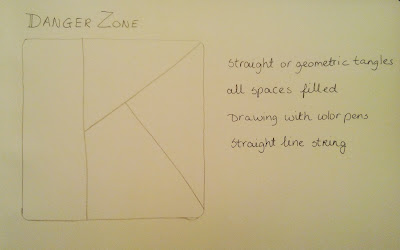 DANGER ZONE
Straight or geometric tangles
all spaces filled
Drawing with color pens
Straight line string